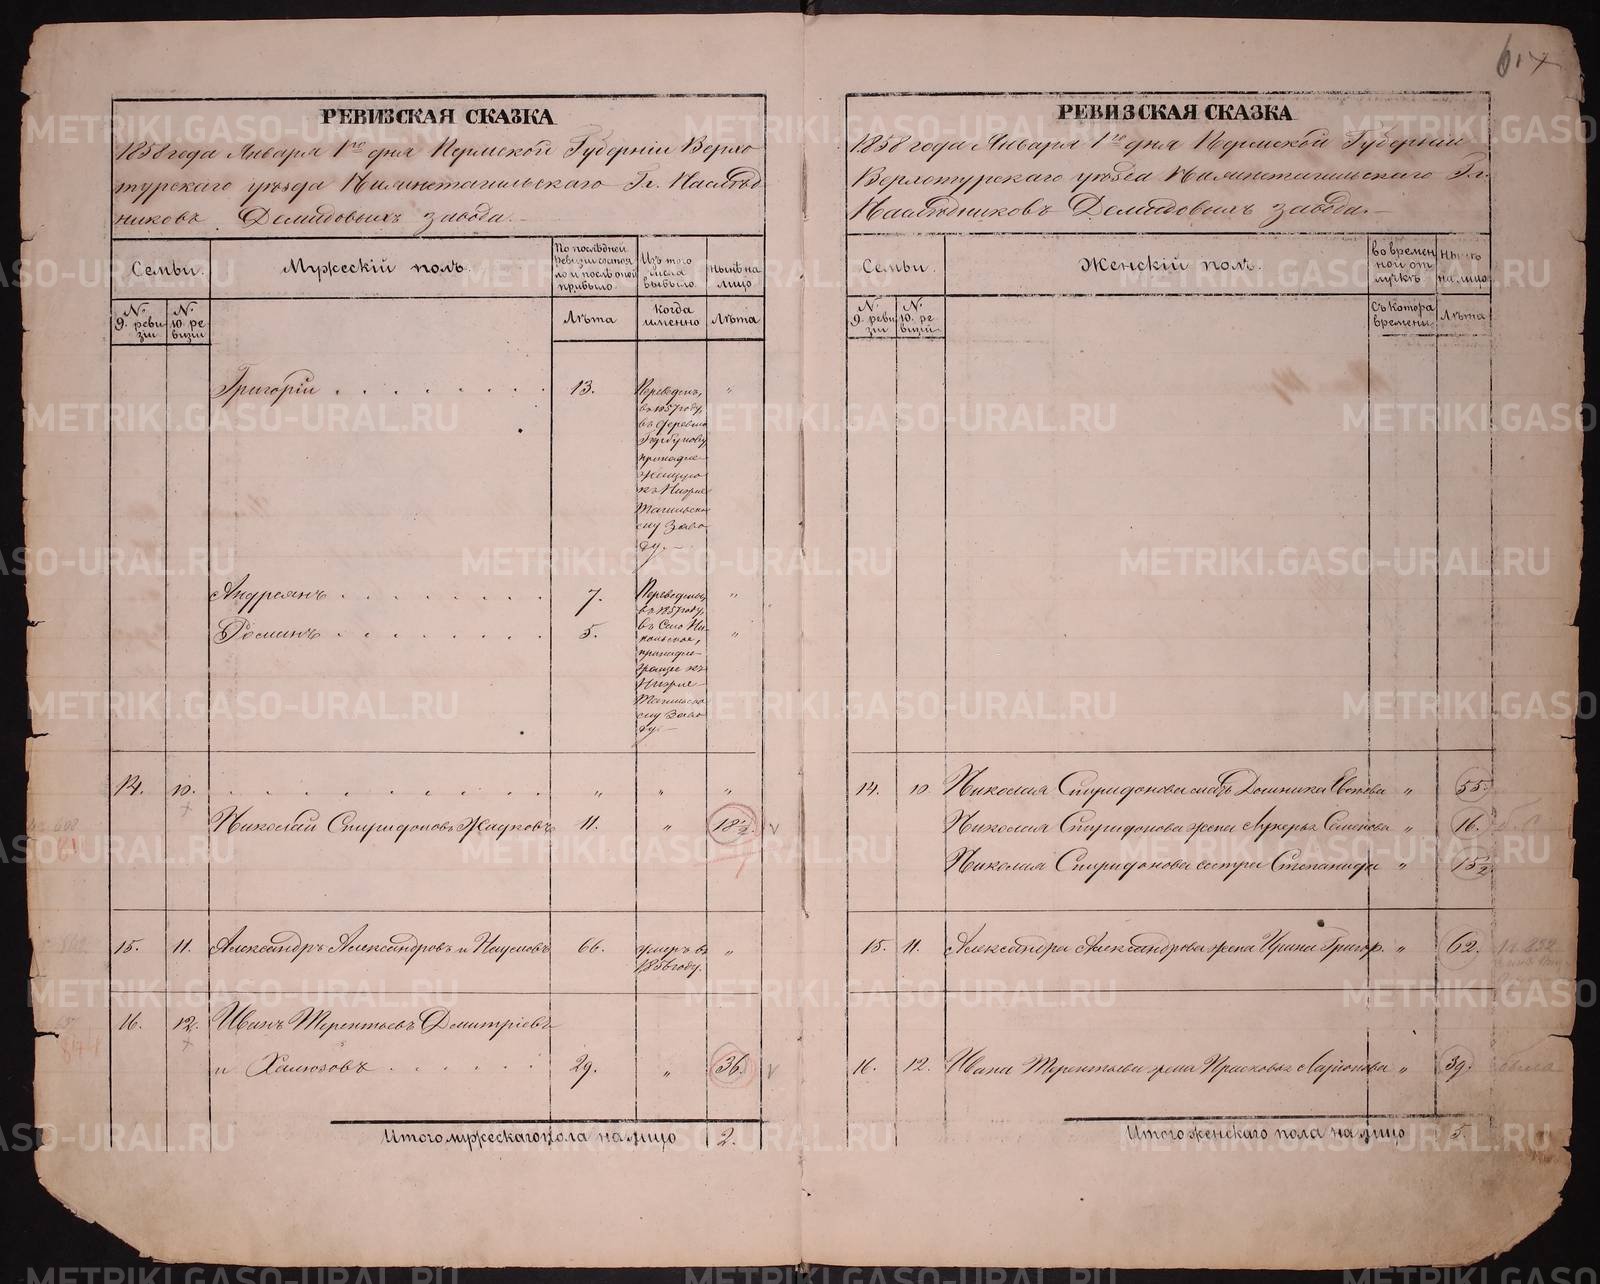 617
РЕВИЗСКАЯ СКАЗКА
1858 года Января 1го дня Пермской Губерніи Верхо
турскаго уѣзда Нижнетагильскаго Гг. Наслѣд
никовъ Демидовыхъ завода.
Семьи.
Мужескій полъ.
По послѣдней
ревизіи состоя
ло и послѣ оной
прибыло.
Изъ того
числа
выбыло
Нынѣ на
лицо
№
9. реви
зіи
№
10. ре
визіи
Лѣта
когда
именно
Лѣта
Григорій 13. "
Переведенъ
въ 1857 году,
въ деревню
принадле
жащую
къ Нижне
Тагильско
му Заво
ду.
Андреянъ 7. "
Романъ 5. "
Переведены
въ 1857 году,
въ Село Ни
кольское,
принадле
жащее къ
Нижне
Тагильско
му Заво
ду.
14. 10. " " "
Николай Спиридоновъ Жадковъ 11. " 18½.
15. 11. Александръ Александровъ и Наумовъ 66. умеръ въ "
1856 году.
16. 12. Иванъ Терентьевъ Дмитріевъ
и Халюзовъ 29. " 36.
Итого мужескаго пола на лицо 2.
РЕВИЗСКАЯ СКАЗКА
1858 года Января 1го дня Пермской Губерніи
Верхотурскаго уѣзда Нижнетагильскаго Гг.
Наслѣдниковъ Демидовыхъ завода.
Семьи.
Женскій полъ.
во времен
ной от
лучкѣ
Нынѣ
на лицо
№
9. реви
зіи
№
10. ре
визіи
Съ котора
времени
Лѣта
14. 10 Николая Спиридонова мать Домника " 55.
Николая Спиридонова жена Лукерья Семенова " 16.
Николая Спиридонова сестра Степанида " 15½
15. 11. Александра Александрова жена Ирина Григор. " 62.
16. 12. Ивана Терентьева жена Прасковья Ларіонова " 39.
Итого женскаго пола на лицо 5.
METRIKI.GASO-URAL.RU